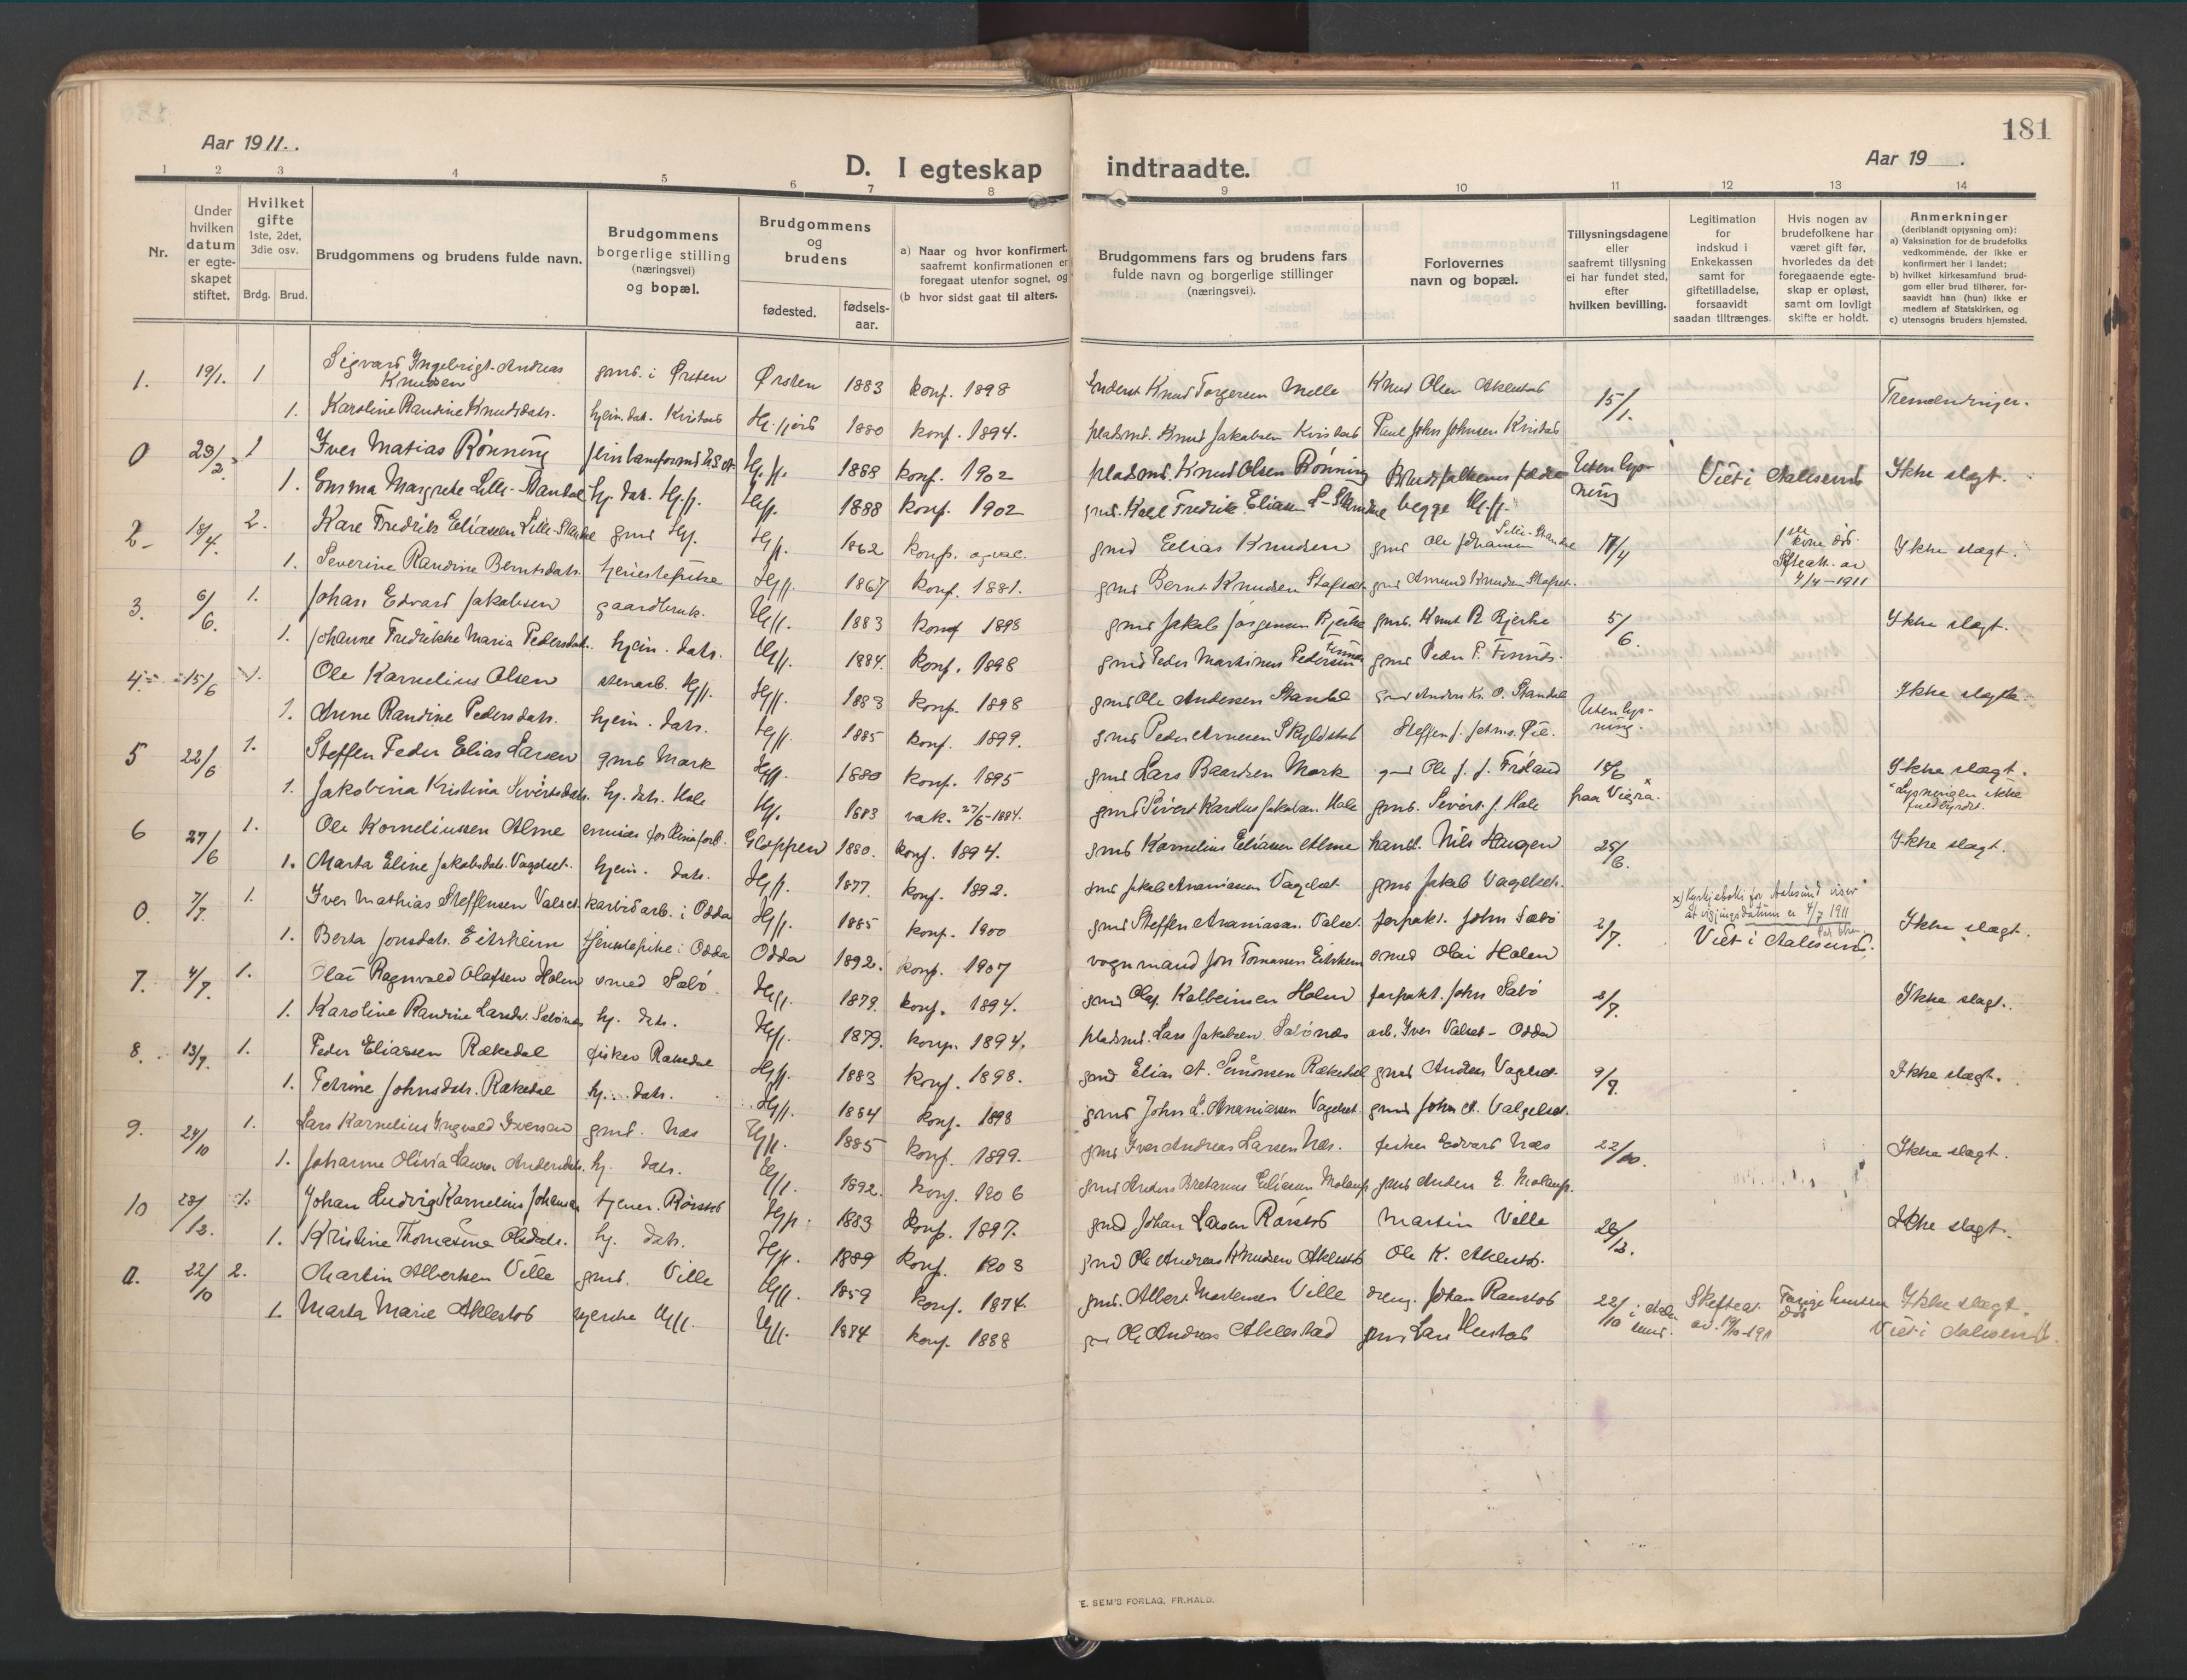 181
Aar 1911.
Aar 19 .
D. I egteskap indtraadte.
1 2 3 4 5 6 7 8 9 10 11 12 13 14
Nr.
Under hvilken datum er egteskapet stiftet.
Hvilket gifte 1ste, 2det, 3die osv.
Brdg. Brud.
Brudgommens og brudens fulde navn.
Brudgommens borgerlige stilling (næringsvei) og bopæl.
Brudgommens og brudens
fødested. fødsels-aar.
a) Naar og hvor konfirmert, saafremt konfirmationen er foregaat utenfor sognet, og
(b hvor sidst gaat til alters.
Brudgommens fars og brudens fars fulde navn og borgerlige stillinger (næringsvei).
Forlovernes navn og bopæl.
Tillysningsdagene eller saafremt tillysning ei har fundet sted, efter hvilken bevilling.
Legitimation for indskud i Enkekassen samt for giftetilladelse, forsaavidt saadan tiltrænges.
Hvis nogen av brudefolkene har været gift før, hvorledes da det foregaaende egteskap er opløst, samt om lovligt skifte er holdt.
Anmerkninger (deriblandt opjysning om):
a) Vaksination for de brudefolks vedkommende, der ikke er konfirmert her i landet;
b) hvilket kirkesamfund brudgom eller brud tilhører, forsaavidt han (hun) ikke er medlem af Statskirken, og
c) utensogns bruders hjemsted.
1. 19/1. 1 Sigvard Ingebrigt Andreas Knudsen gmd. i Ørsten Ørsten 1883 konf. 1898 Knud Torgersen Melle Knud Olsen Aklestad 15/1. Tremenninger.
1. Karoline Randine Knudsdatr. hjem. dat. Kvistad Hj.fjord 1880 konf. 1894. pladsmd. Knud Jakobsen Kvistad Paul John Johnsen Kvistad
0 23/2 1 Iver Matias Rønning Hj.fj. 1888 konf. 1902 pladsmd. Knud Olsen Rønning Brudefolkenes fædre Uten lysning Viet i Aalesund Ikke slegt.
1. Emma Margrete Lille-Standal hj. dat. Hj.fj. Hj.fj. 1888 konf. 1902 gmd. Karl Fredrik Eliassen L-Standal begge Hj.fj.
2 18/4. 2. Karl Fredrik Eliassen Lille-Standal gmd Hj. Hj.fj. 1862 konf. og vac. gmd Elias Knudsen gmd Ole Johansen Lille-Standal 17/4 1ste kone død. Skifteatt. av 4/4-1911 Ikke slegt.
1. Severine Randine Berntsdatr. tjenestepike Hj.fj. 1867 konf. 1881. gmd Bernt Knudsen Stafset gmd Amund Knudsen Stafset.
3. 6/6. 1. Johan Edvard Jakobsen gaardbruk. Hj.fj. 1883 konf 1898 gmd Jakob Jørgensen Bjerke gmd. Knut R Bjerke 5/6. Ikke slegt.
1. Johanne Fredrikke Maria Pedersdatr. hjem. datr. Hj.fj. 1884. konf. 1898 gmd Peder Martinus Pedersen Finnes gmd Peder P. Finnes.
4. 15/6 1. Ole Kornelius Olsen stenarb. Hj.fj. Hj.fj. 1883 konf. 1898 gmd Ole Andersen Standal gmd Anders Kn. O. Standal Uten lysning. Ikke slegt.
1. Anne Randine Pedersdatr. hjem. datr. Hj.fj. 1885 konf. 1899. gmd Peder Arnesen Skylstad Steffen J.
5 22/6 1. Steffen Peder Elias Larsen gmd Mork Hj.fj. 1880 konf. 1895 gmd Lars Baardsen Mork gmd Ole J. J. Frøland 18/6 Ikke slegt.
1. Jakobina Kristina Sivertsdatr. hj. datr. Hole Hj. 1883 vak. 27/6-1884. gmd Sivert Karolus Jakobsen Hole gmd. Sivert J. Hole fra Vigra. Lysningen ikke
6 27/6 1. Ole Korneliussen Alme Gloppen 1880. konf. 1894. gmd Kornelius Eliassen Alme handl. Nils Haugen 25/6. Ikke slegt.
1. Marta Eline Jakobsdatr. Vagelset. hjem. datr. Hj.fj. 1877. konf. 1892. gmd Jakob Ananiassen Vagelset gmd Jakob Vagelset.
0. 7/7 1. Iver Mathias Steffensen Valset karbidarb. i Odda Hj.fj. 1885 konf. 1900 gmd Steffen Ananiassen Valset forpakt. John Sæbø 2/7. x) Kyrkjeboki for Aalesund viser at vigjingsdatum er 4/7 1911 Viet i Aalesund. Ikke slegt.
1. Berta Jonsdatr. Eitrheim tjenestepike i Odda Odda 1892. konf. 1907 vognmand Jon Tomassen Eitrheim smed Olai Holen
7. 4/7. 1. Olai Ragnvald Olafsen Holen smed Sæbø Hj.fj. 1879. konf. 1894. gmd Olaf Kolbeinsen Holen forpakt. John Sæbø 2/7. Ikke slegt.
1. Karoline Randine Larsdr. Sæbønes hj. datr. Hj.fj. 1879. konf. 1894. pladsmd. Lars Jakobsen Sæbønæs arb. Iver Valset - Odda
8. 13/7. 1. Peder Eliassen Rækedal fisker Rækedal Hj.fj. 1883 konf. 1898. gmd Elias A. Simonsen Rækedal gmd Anders Vagelset 9/7. Ikke slegt.
1. Petrine Johnsdatr. Rækedal hj. datr. Hj.fj. 1884 konf. 1898 gmd John L. Ananiassen Vagelset gmd John A. Valgelset.
9. 24/10 1. Lars Kornelius Ingvald Iversen gmd. Næs Hj.fj. 1885 konf. 1899. gmd Iver Andreas Larsen Næs. fisker Edvard Næs 22/10. Ikke slegt.
1. Johanne Olivia Laura Andersdatr. hj. datr. Hj.fj. 1892. konf. 1906 gmd Anders Bretanus Eliassen Molaup gmd Anders E. Molaup.
10 28/12. 1. Johan Ludvig Kornelius Johansen tjener. Rørstad Hj.fj. 1883 konf. 1897. gmd Johan Larsen Rørstad Martin Ville 26/12. Ikke slegt.
1. Kristine Thomasine Olsdatr. hj. datr. Hj.fj. 1889 konf. 1903 gmd Ole Andreas Knudsen Aklestad Ole K. Aklestad.
0. 22/10 2. Martin Albertsen Ville gmd. Ville Hj.fj. 1859 konf. 1874. gmd. Albert Martinsen Ville dreng. Johan Rørstad 22/10 i Aalesund. Skifteat. av 19/10-191 Forrige hustru død Ikke slegt.
1. Marta Marie Aklestad Hj.fj. Hj.fj. 1874 konf. 1888 gmd Ole Andreas Aklestad gmd Lars Hustad Viet i Aalesund.
E. SEM'S FORLAG, FR.HALD.